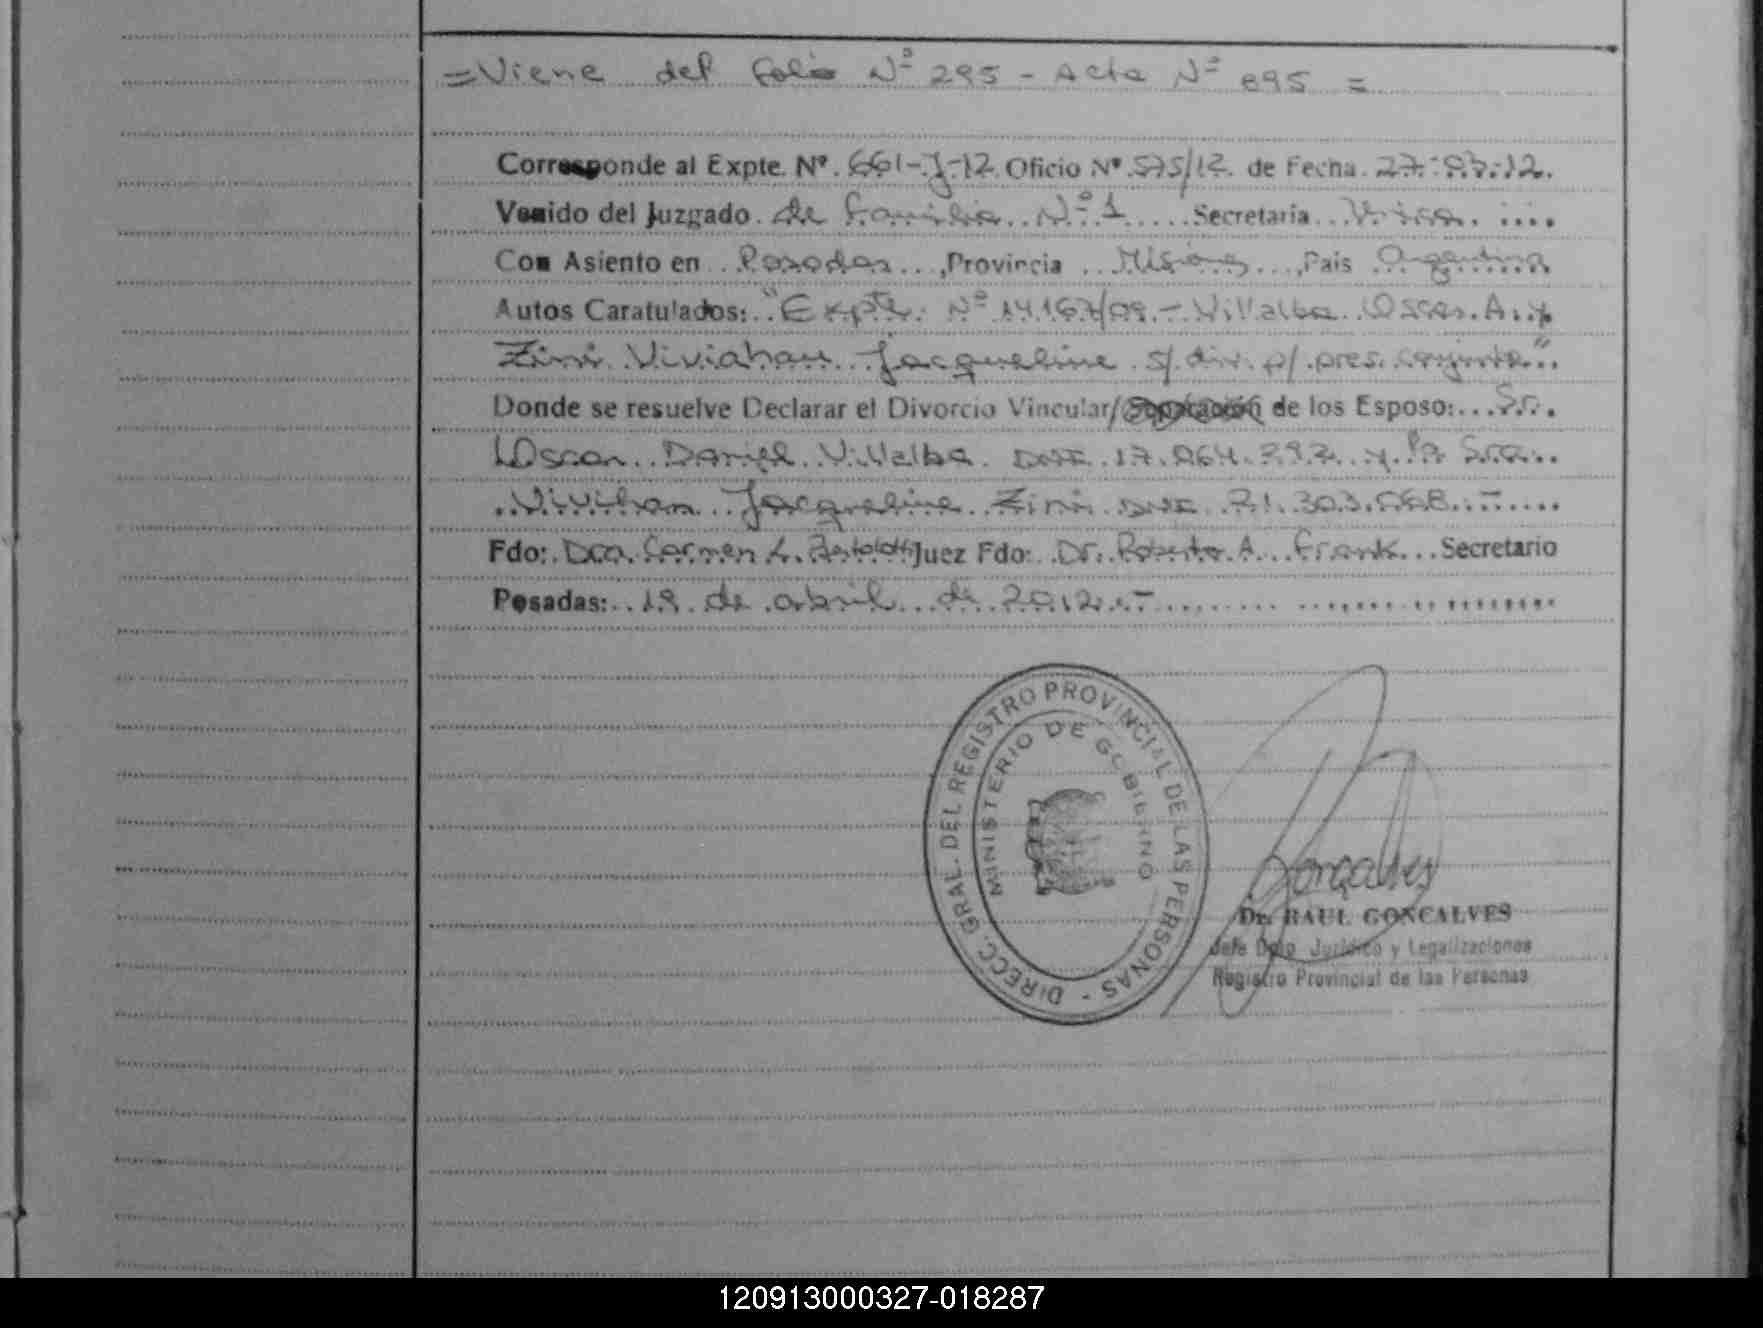 = Viene del folio Nº 295 - Acta Nº 895 =
Corresponde al Expte. Nº. 661-J-12. Oficio Nº. 575/12. de Fecha. 27.03.12.
Venido del Juzgado. de Familia Nº 1 Secretaría. Unica.
Con Asiento en Posadas, Provincia Misiones, Pais Argentina
Autos Caratulados: "Expte. Nº 14167/09.- Villalba Oscar. A. y
Zini Vivian Jacqueline s/ div. p/ pres. conjunta".
Donde se resuelve Declarar el Divorcio Vincular/ de los Esposo: Sr.
Oscar Daniel Villalba DNI 17. y la Sra.
Jacqueline Zini DNI 21.303.068.-
Fdo: Dra. Carmen L. Bertolotti Juez Fdo: Dr. Roberto A. Frank Secretario
Posadas: 19 de abril de 2012.-
DIRECC. GRAL. DEL REGISTRO PROVINCIAL DE LAS PERSONAS -
MINISTERIO DE GOBIERNO
Gonçalves
Dr. RAUL GONCALVES
Jefe Dpto. Jurídico y Legalizaciones
Registro Provincial de las Personas
120913000327-018287